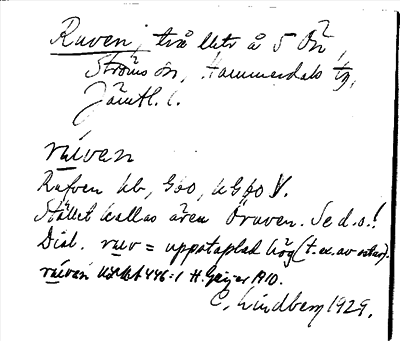 Ruven, två lktr å 5 Ön,
Ströms sn, Hammerdals tg,
Jämtl. l.
rúven
Rufven kb, Gbo, 
Stället kallas även Öruven. Se d.o.!
Dial. ruv = uppstaplad hög (t.ex. av ostar).
rúven 446:1 H. Geijer 1910.
C. Lindberg 1929.